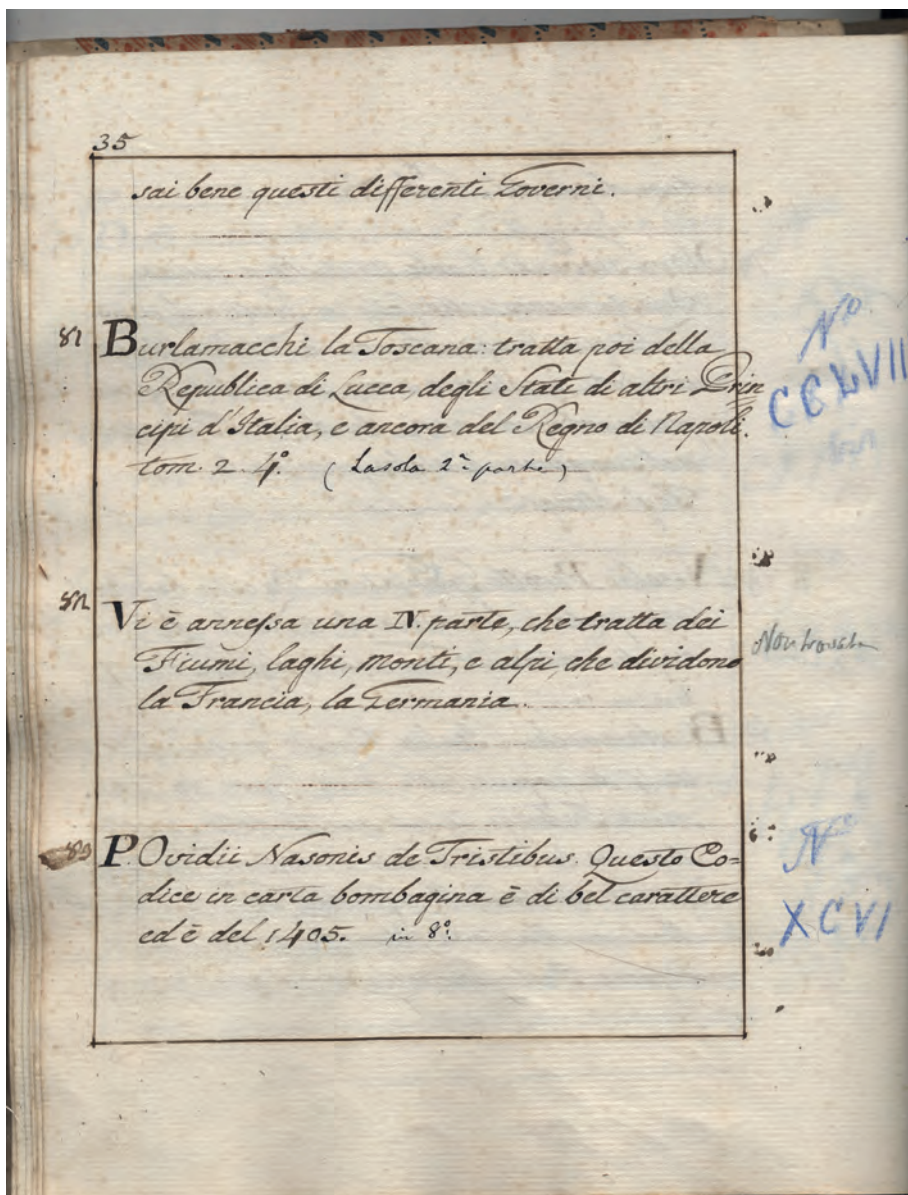 35
sai bene questi differenti Governi.
81 Burlamacchi la Toscana: tratta poi della
Republica di Lucca, degli Stati di altri Prin
cipi d'Italia, e ancora del Regno di Napoli.
tom. 2. 4º. (La sola 2ª parte)
No.
CCLVII
82 Vi è annessa una IV. parte, che tratta dei
Fiumi, laghi, monti, e alpi, che dividono
la Francia, la Germania.
Non trovata
83 P. Ovidii Nasonis de Tristibus. Questo Co=
dice in carta bombagina è di bel carattere
ed è del 1405. in 8º.
No
XCVI